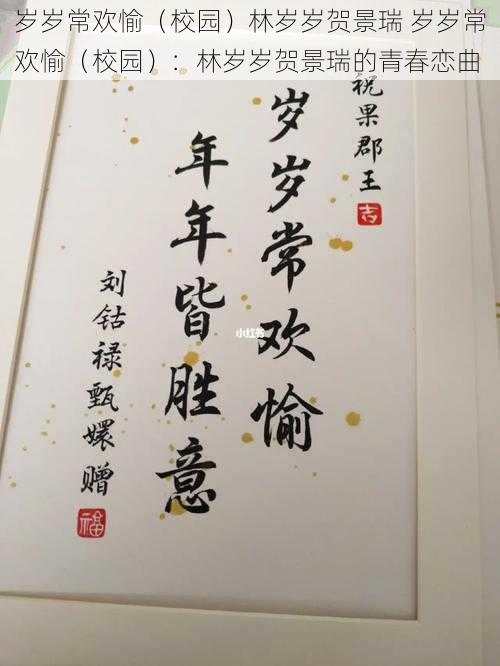 岁岁常欢愉（校园）林岁岁贺景瑞 岁岁常
欢愉（校园）：林岁岁贺景瑞的青春恋曲
祝果郡王
吉
岁岁常欢愉
年年皆胜意
刘钴禄甄嬛赠
福
小红书